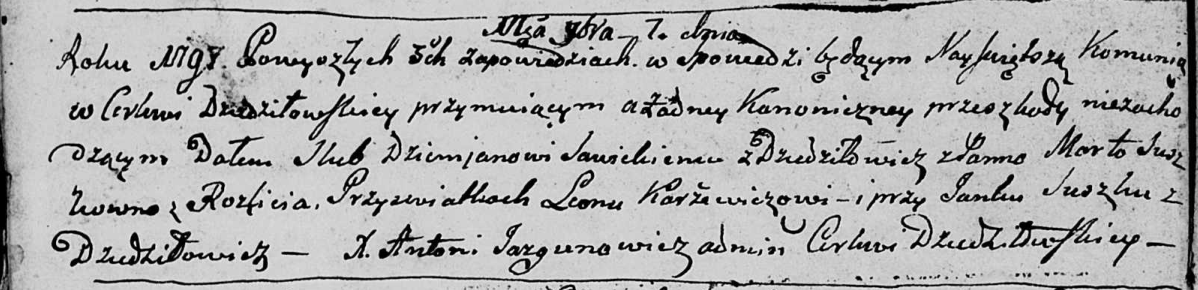 Mca 9bra 7. dnia
Roku 1798 Powyszłych 3ch zapowiedziach. w spowiedzi będącym Nayświętszą Komunią
w Cerkwi Dziedziłowskiey przymuiącym a żadney Kanoniczney przeszkody niezacho
dzącym Dałem Ślub Dziemjanowi Sawickiemu z Dziedziłowicz z Panno Marto Susz
kowno z Rozlicia. Przy swiatkach Leonu Karżewiczowi - i przy Janku Suszku z
Dziedziłowicz — X. Antoni Jazgunowicz admin Cerkwi Dziedziłowskiey —